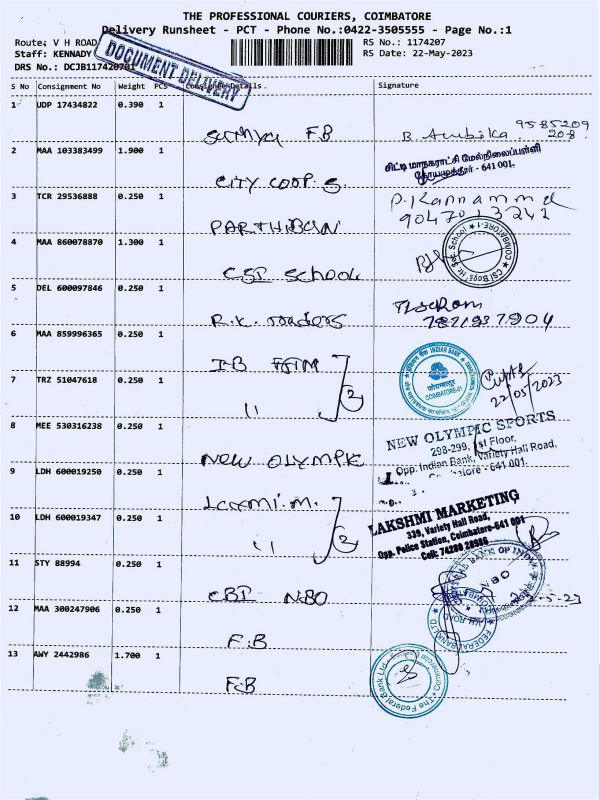 THE PROFESSIONAL COURIERS, COIMBATORE
Delivery Runsheet - PCT - Phone No.:0422-3505555 - Page No.:1
Route: V H ROAD
RS No.: 1174207
Staff: KENNADY
RS Date: 22-May-2023
DRS No.: DCJB117420701
DOCUMENT DELIVERY
S No Consignment No Weight PCS Consignee Details. Signature
1 UDP 17434822 0.390 1
Sathya F.B B. Ambika 9585209
208
2 MAA 103383499 1.900 1
CITY COOP. S. சிட்டி மாநகராட்சி மேல்நிலைப்பள்ளி
- 641 001.
3 TCR 29536888 0.250 1
PARTHIBAN P. Kannammal
4 MAA 860078870 1.300 1
CSI School CSI Boys' Hr. Sec. School ★ COIMBATORE-1 ★
5 DEL 600097846 0.250 1
R.K. Traders
7871937904
6 MAA 859996365 0.250 1
I-B INDIAN BANK
कोयम्बत्तूर
COIMBATORE-01
7 TRZ 51047618 0.250 1
11 2 22/05/2023
8 MEE 530316238 0.250 1
NEW OLYMPIC NEW OLYMPIC SPORTS
298-299, 1st Floor,
Opp. Indian Bank, Variety Hall Road,
- 641 001.
9 LDH 600019250 0.250 1
Laxmi. M. LAKSHMI MARKETING
339, Variety Hall Road,
Opp. Police Station, Coimbatore-641 001
Cell: 74280 28986
10 LDH 600019347 0.250 1
11 2
11 STY 88994 0.250 1
CBI NBO BANK OF INDIA
NBO
12 MAA 300247906 0.250 1
F.B FEDERAL BANK LTD
13 AWY 2442986 1.700 1
F.B The Federal Bank Ltd.